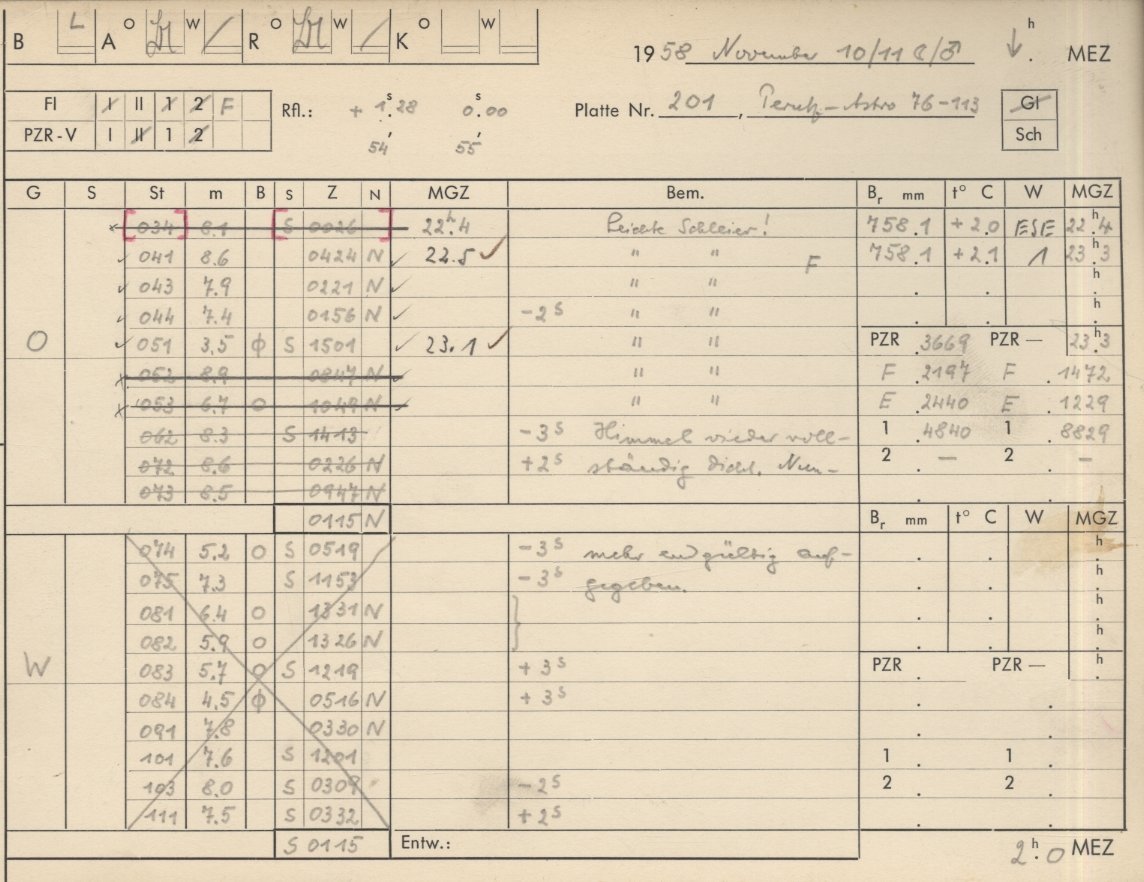 B L A O W / R O W / K O W
1958 November 10/11 ☾/♂ h MEZ
FI I II 1 2 F
PZR-V I II 1 2
Rfl.: + 1.ˢ28 0.ˢ00
54' 55'
Platte Nr. 201, Perutz-Astro 76-113
Gl
Sch
G S St m B S Z N MGZ Bem. Bᵣ mm t° C W MGZ
[034] 8.1 [S 0026 ] 22.ʰ4 Leichte Schleier! 758.1 +2.0 ESE 22.ʰ4
041 8.6 0424 N 22.5 " " F 758.1 +2.1 1 23.ʰ3
043 7.9 0221 N " " . . h.
044 7.4 0156 N -2ˢ " " . . h.
O 051 3.5 φ S 1501 23.1 " " PZR .3669 PZR — 23.ʰ3
052 8.9 0847 N " " F .2197 F .1472
053 6.7 O 1049 N " " E .2440 E .1229
062 8.3 S 1413 -3ˢ Himmel wieder voll- 1 .4840 1 .8829
072 8.6 0226 N +2ˢ ständig dicht. Nun- 2 . — 2 . —
073 8.5 0947 N
0115 N Bᵣ mm t° C W MGZ
074 5.2 O S 0519 -3ˢ mehr endgültig auf- . . h.
075 7.3 S 1153 -3ˢ gegeben. . . h.
081 6.4 O 1331 N } . . h.
082 5.9 O 1326 N . . h.
W 083 5.7 O S 1219 +3ˢ PZR . PZR — h.
084 4.5 φ 0516 N +3ˢ
091 7.8 0330 N
101 7.6 S 1201 1 . 1 .
103 8.0 S 0309 -2ˢ 2 . 2 .
111 7.5 S 0332 +2ˢ
S 0115 Entw.: 2.ʰ0 MEZ